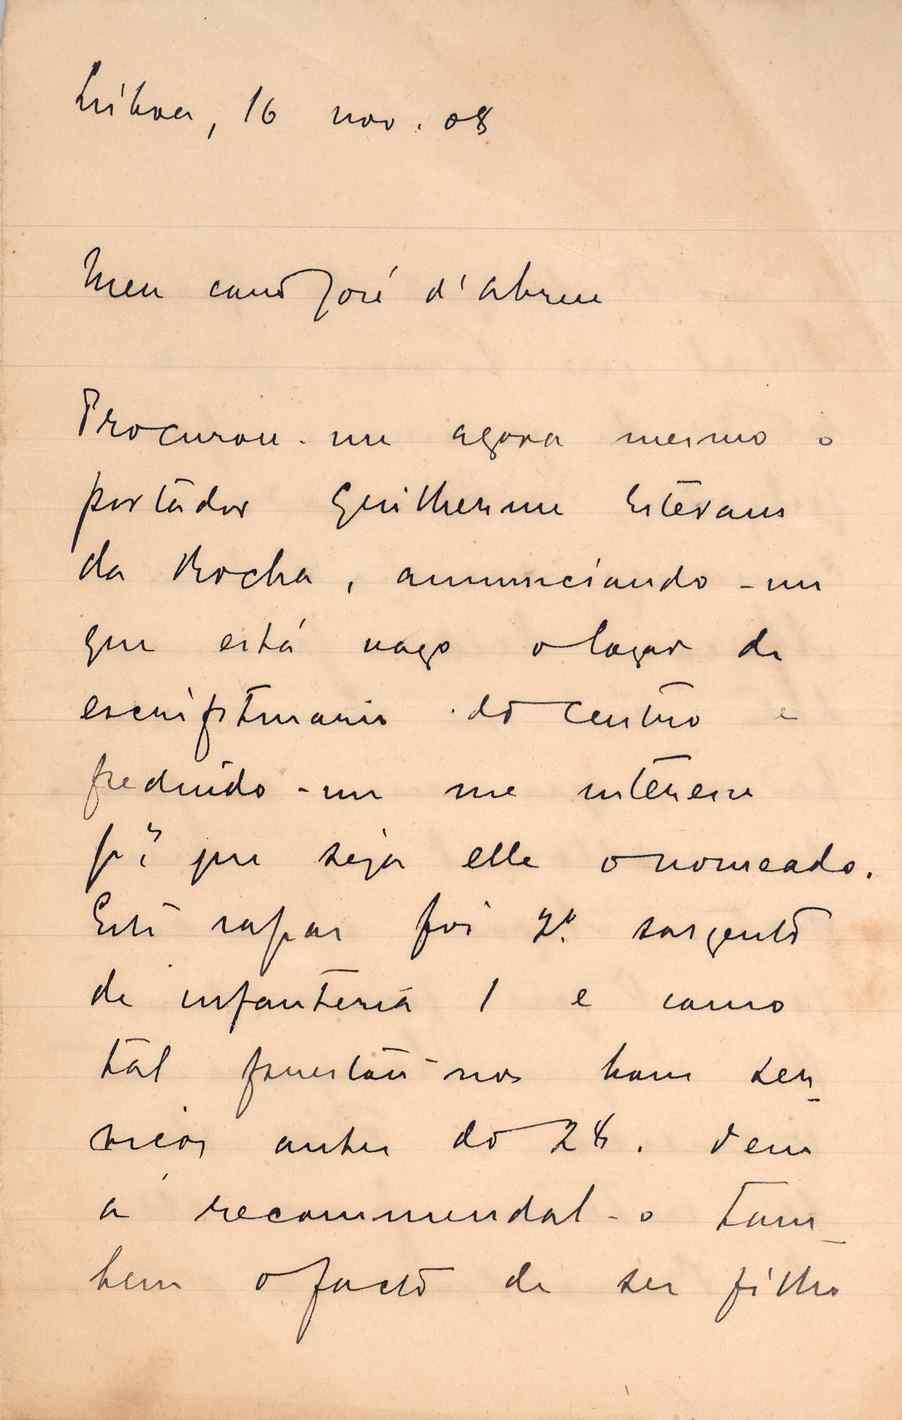 Lisboa, 16 nov. 08
Meu caro José d'Abreu
Procurou-me agora mesmo o
portador Guilherme Estevam
da Rocha, annunciando-me
que está vago o logar de
escripturario do Centro e
pedindo-me me interesse
pª que seja elle o nomeado.
Este rapaz foi 2º sargento
de infanteria 1 e como
tal prestou-nos bons ser-
viços antes do 28. Vem
a recommendal-o tam-
bem o facto de ser filho